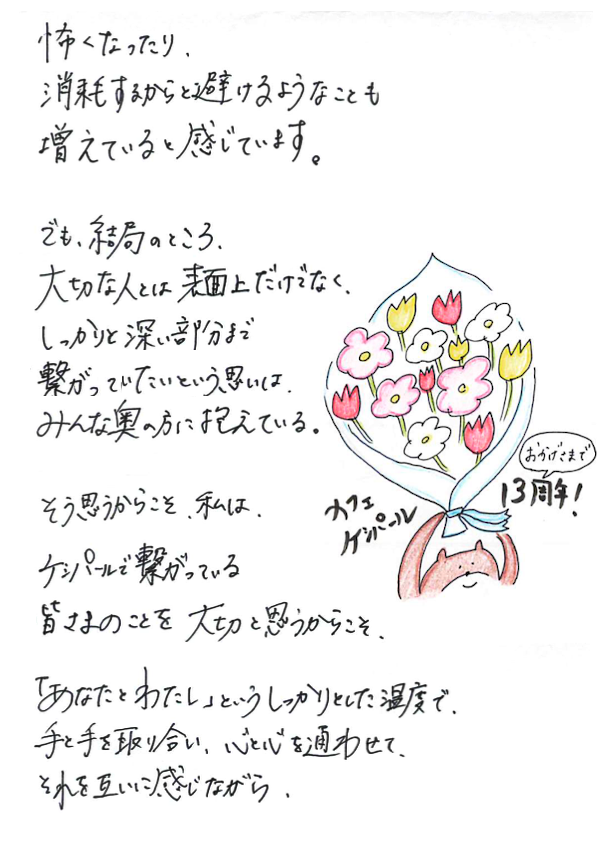 怖くなったり、
消耗するからと避けるようなことも
増えていると感じています。
でも、結局のところ、
大切な人とは表面上だけでなく、
しっかりと深い部分まで
繋がっていたいという思いは、
みんな奥の方に抱えている。
おかげさまで
13周年!
カフェ
ケシパール
そう思うからこそ、私は、
ケシパールで繋がっている
皆さまのことを大切と思うからこそ、
「あなたとわたし」というしっかりとした温度で、
手と手を取り合い、心と心を通わせて、
それを互いに感じながら、